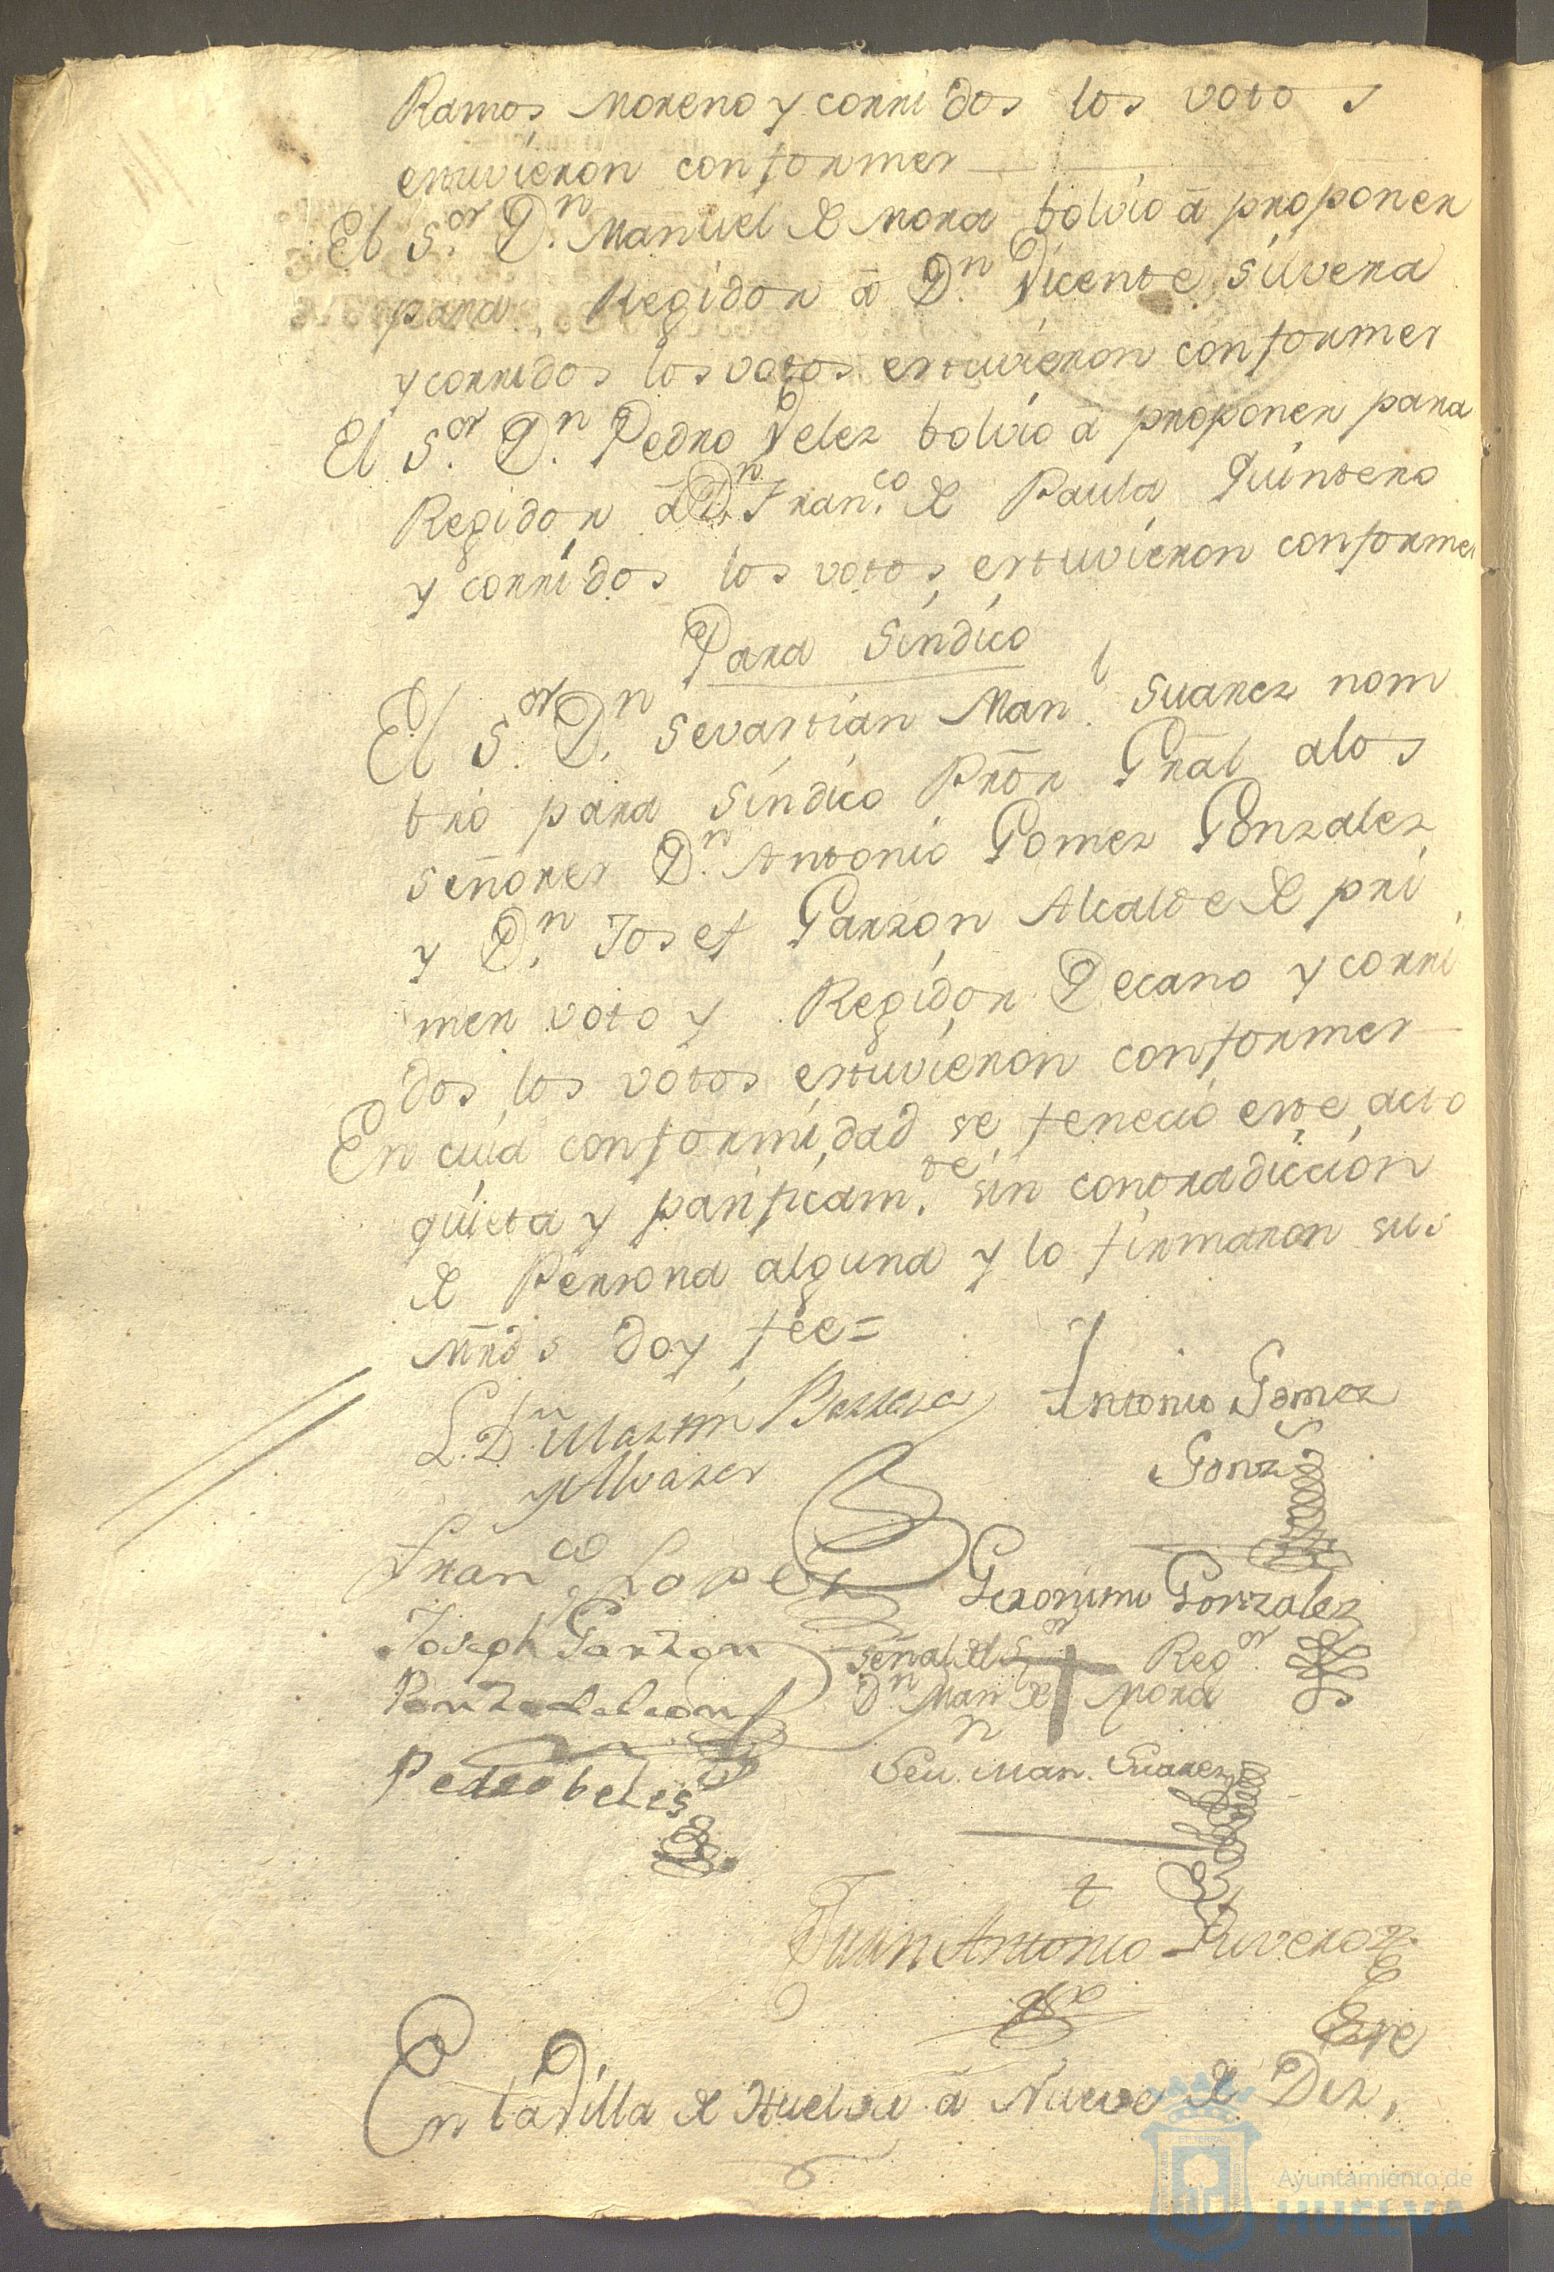 Ramos Moreno y corridos los votos
estuvieron conformes
El S.or D.n Manuel de Mora bolvio â proponer
para Regidor â D.n Vicente Silvera
y corridos los votos estuvieron conformes
El S.or D.n Pedro Velez bolvio â proponer para
Regidor â D.n Fran.co de Paula Quintero
y corridos los votos estuvieron conformes
Para Sindico
El S.or D.n Sevastian Man.l Suarez nom
bro para Sindico Prõr Grãl alos
señores D.n Antonio Gomez Gonzalez
y D.n Josef Garzon Alcalde de pri
mer voto y Regidor Decano y corri
dos los votos estuvieron conformes
En cuia conformidad se fenecio este acto
quieta y pasificam.te sin contradiccion
de Persona alguna y lo firmaron sus
Mrds doy fee=
L. D.n Martin Barrera
y Alvarez
Antonio Gomez
Gonz
Fran.co Lopez
Geronimo Gonzalez
Joseph Garzon
Ponze de Leon
Señal del S.or Reg.or
D.n Man.l de Mora
Pedro belis
Sev.n Man. Suarez
Juan Antonio Rivero
Ere
En la Villa de Huelva â Nueve de Diz,
Ayuntamiento de
HUELVA